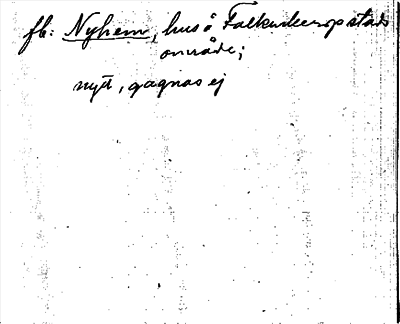 fb: Nyhem, hus å Falkenbergs stads
område;
nytt, gagnas ej